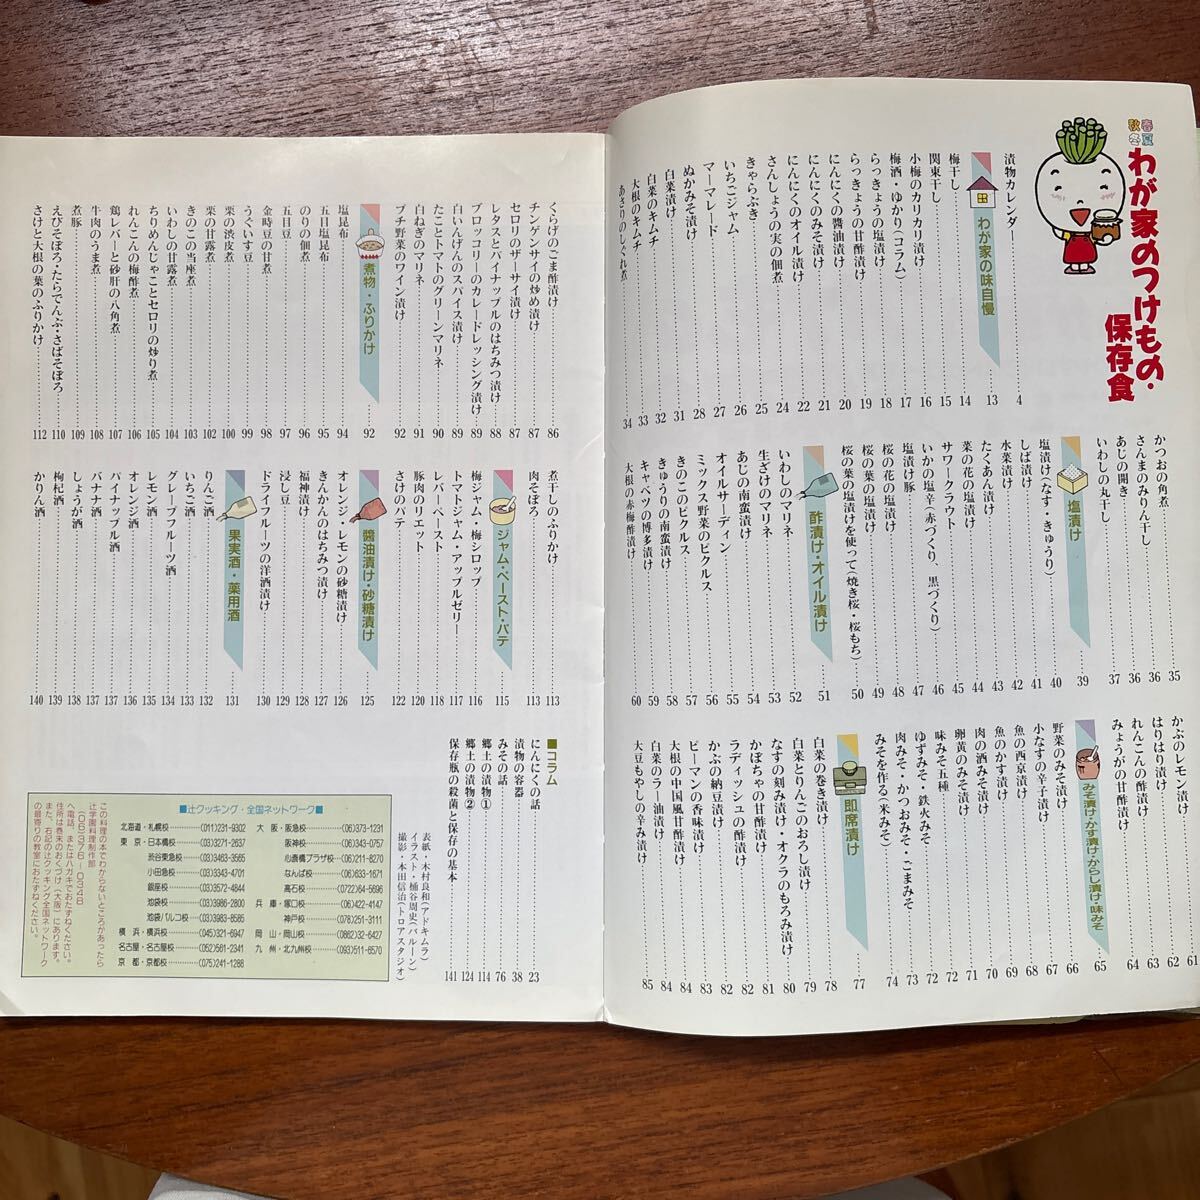 春夏秋冬
わが家のつけもの・保存食
漬物カレンダー 4
わが家の味自慢 13
梅干し 14
関東干し 15
小梅のカリカリ漬け 16
梅酒・ゆかり（コラム） 17
らっきょうの塩漬け 18
らっきょうの甘酢漬け 19
にんにくの醬油漬け 20
にんにくのみそ漬け 21
にんにくのオイル漬け 22
さんしょうの実の佃煮 24
きゃらぶき 25
いちごジャム 26
マーマレード 27
ぬかみそ漬け 28
白菜漬け 31
白菜のキムチ 32
大根のキムチ 33
あさりのしぐれ煮 34
かつおの角煮 35
さんまのみりん干し 36
あじの開き 36
いわしの丸干し 37
塩漬け 39
塩漬け（なす・きゅうり） 40
しば漬け 41
水菜漬け 42
たくあん漬け 43
菜の花の塩漬け 44
サワークラウト 45
いかの塩辛（赤づくり、黒づくり） 46
塩漬け豚 47
桜の花の塩漬け 48
桜の葉の塩漬け 49
桜の葉の塩漬けを使って（焼き桜・桜もち） 50
酢漬け・オイル漬け 51
いわしのマリネ 52
生ざけのマリネ 53
あじの南蛮漬け 54
オイルサーディン 55
ミックス野菜のピクルス 56
きのこのピクルス 57
きゅうりの南蛮漬け 58
キャベツの博多漬け 59
大根の赤梅酢漬け 60
かぶのレモン漬け 61
はりはり漬け 62
れんこんの酢漬け 63
みょうがの甘酢漬け 64
みそ漬け・かす漬け・からし漬け・味みそ 65
野菜のみそ漬け 66
小なすの辛子漬け 67
魚の西京漬け 68
魚のかす漬け 69
肉の酒みそ漬け 70
卵黄のみそ漬け 71
味みそ五種 72
ゆずみそ・鉄火みそ 72
肉みそ・かつおみそ・ごまみそ 73
みそを作る（米みそ） 74
即席漬け 77
白菜の巻き漬け 78
白菜とりんごのおろし漬け 79
なすの刻み漬け・オクラのもろみ漬け 80
かぼちゃの甘酢漬け 81
ラディッシュの酢漬け 82
かぶの納豆漬け 82
ピーマンの香味漬け 83
大根の中国風甘酢漬け 84
白菜のラー油漬け 84
大豆もやしの辛み漬け 85
くらげのごま酢漬け 86
チンゲンサイの炒め漬け 87
セロリのザーサイ漬け 87
レタスとパイナップルのはちみつ漬け 88
ブロッコリーのカレードレッシング漬け 89
白いんげんのスパイス漬け 89
たことトマトのグリーンマリネ 90
白ねぎのマリネ 91
プチ野菜のワイン漬け 92
煮物・ふりかけ 92
塩昆布 94
五目塩昆布 95
のりの佃煮 96
五目豆 97
金時豆の甘煮 98
うぐいす豆 99
栗の渋皮煮 100
栗の甘露煮 102
きのこの当座煮 103
いわしの甘露煮 104
ちりめんじゃことセロリの炒り煮 105
れんこんの梅酢煮 106
鶏レバーと砂肝の八角煮 107
牛肉のうま煮 108
煮豚 109
えびそぼろ・たらでんぶ・さばそぼろ 110
さけと大根の葉のふりかけ 112
煮干しのふりかけ 113
肉そぼろ 113
ジャム・ペースト・パテ 115
梅ジャム・梅シロップ 116
トマトジャム・アップルゼリー 117
レバーペースト 118
豚肉のリエット 120
さけのパテ 122
醬油漬け・砂糖漬け 125
オレンジ・レモンの砂糖漬け 126
きんかんのはちみつ漬け 127
福神漬け 128
浸し豆 129
ドライフルーツの洋酒漬け 130
果実酒・薬用酒 131
りんご酒 132
いちご酒 133
グレープフルーツ酒 134
レモン酒 135
オレンジ酒 136
パイナップル酒 137
バナナ酒 137
しょうが酒 138
枸杞酒 139
かりん酒 140
■コラム
にんにくの話 23
漬物の容器 38
みその話 76
郷土の漬物① 114
郷土の漬物② 124
保存瓶の殺菌と保存の基本 141
表紙・木村良和（アドキムラ）
イラスト・桶谷周史（バルーン）
撮影・木田信治（トロアスタジオ）
■辻クッキング・全国ネットワーク■
北海道・札幌校 (011)231-9302
東京・日本橋校 (03)3271-2637
渋谷東急校 (03)3463-3565
小田急校 (03)3343-4701
銀座校 (03)3572-4844
池袋校 (03)3986-2800
池袋パルコ校 (03)3983-8585
横浜・横浜校 (045)321-6947
名古屋・名古屋校 (052)561-2341
京都・京都校 (075)241-1288
大阪・阪急校 (06)373-1231
阪神校 (06)343-0757
心斎橋プラザ校 (06)211-8270
なんば校 (06)633-1671
高石校 (0722)64-5696
兵庫・塚口校 (06)422-4147
神戸校 (078)251-3111
岡山・岡山校 (0862)32-6427
九州・北九州校 (093)511-6570
この料理の本でわからないところがあったら
辻学園料理制作部
(06)376-0348
へ電話、またはハガキでおたずねください。
住所は巻末のおくづけ（大阪）にあります。
また、右記の辻クッキング全国ネットワーク
の最寄りの教室におたずねください。